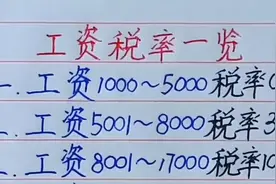 工资税率一览
一.工资1000～5000税率0
二.工资5001～8000税率3
三.工资8001～17000税率10